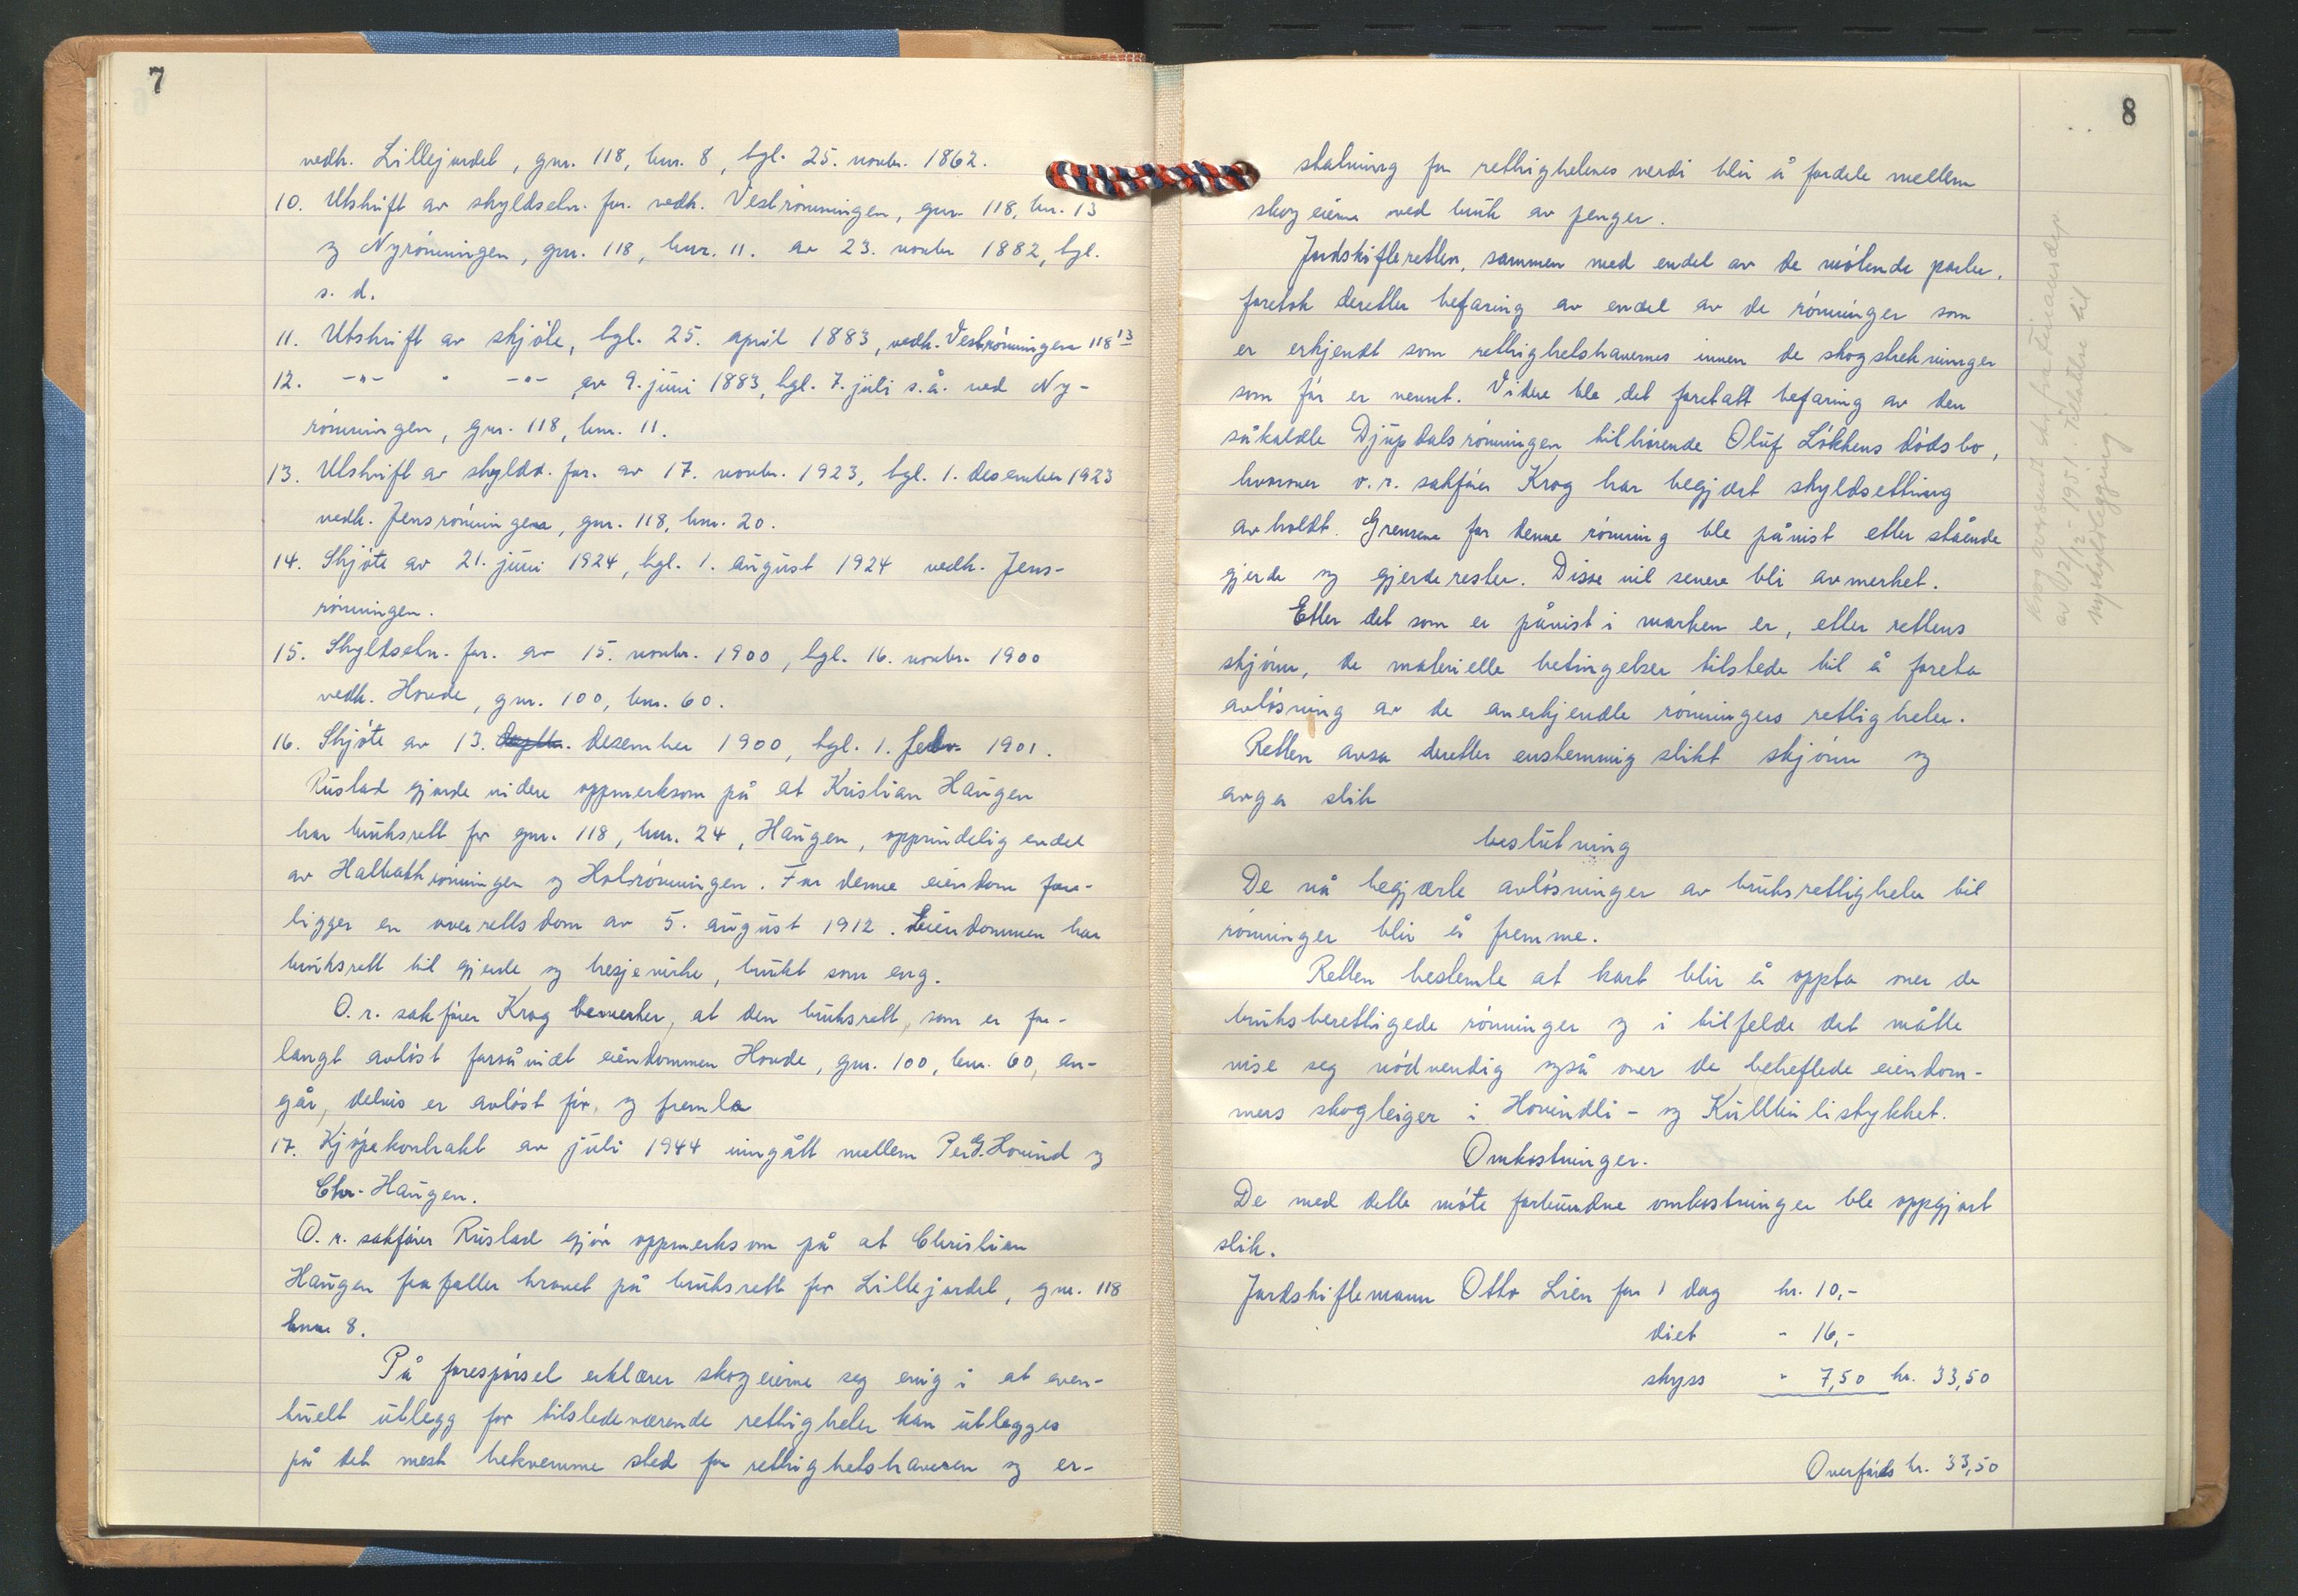 7
vedk. Lillejordet, gnr. 118, bnr. 8, tgl. 25. novbr. 1862.
10. Utskrift av skyldseln. for. vedk. Veströnningen, gnr. 118, bnr. 13
og Nyrönningen, gnr. 118, bnr. 11. av 23. novbr 1882, tgl.
s. d.
11. Utskrift av skjöte, tgl. 25. april 1883, vedk. Veströnningen 118 13
12. -"- " -"- av 9. juni 1883, tgl. 7. juli s.å. ved Ny-
rönningen, gnr. 118, bnr. 11.
13. Utskrift av skyldd. for. av 17. novbr. 1923, tgl. 1. desember 1923
vedk. Jensrönningen, gnr. 118, bnr. 20.
14. Skjöte av 21. juni 1924, tgl. 1. august 1924 vedk. Jens-
rönningen.
15. Skyldseln. for. av 15. novbr. 1900, tgl. 16. novbr. 1900
vedk. Hovde, gnr. 100, bnr. 60.
16. Skjöte av 13. desember 1900, tgl. 1. febr. 1901.
Rustad gjorde videre oppmerksom på at Kristian Haugen
har bruksrett for gnr. 118, bnr. 24, Haugen, opprindelig endel
av Halbakkrönningen og Holsrönningen. For denne eiendom fore-
ligger en overrettsdom av 5. august 1912. Eiendommen har
bruksrett til gjerde og hesjevirke, brukt som eng.
O. r. sakförer Krog bemerker, at den bruksrett, som er for-
langt avlöst forsåvidt eiendommen Hovde, gnr. 100, bnr. 60, an-
går, delvis er avlöst för, og fremla
17. Kjöpekontrakt av juli 1944 inngått mellem Per G. Hovind og
Chr. Haugen.
O. r. sakförer Rustad gjör oppmerksom på at Christian
Haugen frafaller kravet på bruksrett for Lillejordet, gnr. 118
bnr 8.
På forespörsel erklærer skogeierne seg enig i at even-
tuelt utlegg for tilstedeværende rettigheter kan utlegges
på det mest bekvemme sted for rettighetshaveren og er-
8
statning for rettighetenes verdi blir å fordele mellem
skogeierne ved bruk av penger.
Jordskifteretten, sammen med endel av de mötende parter,
foretok deretter befaring av endel av de rönninger som
er erkjendt som rettighetshavernes innen de skogstrekninger
som för er nevnt. Videre ble det foretatt befaring av den
såkaldte Djupdalsrönningen tilhörende Oluf Lökkens dödsbo,
hvorover o. r. sakförer Krog har begjært skyldsetting
avholdt. Grensene for denne rönning ble påvist etter stående
gjerde og gjerderester. Disse vil senere bli avmerket.
Etter det som er påvist i marken er, etter rettens
skjönn, de materielle betingelser tilstede til å foreta
avlösning av de anerkjendte rönningers rettigheter.
Retten avsa deretter enstemmig slikt skjönn og
avga slik
beslutning
De nå begjærte avlösninger av bruksrettigheter til
rönninger blir å fremme.
Retten bestemte at kart blir å oppta over de
bruksberettigede rönninger og i tilfelde det måtte
vise seg nödvendig også over de beheftede eiendom-
mers skogteiger i Hovindli- og Kulllinlistykket.
Omkostninger.
De med dette möte forbundne omkostninger ble oppgjort
slik.
Jordskiftemann Otto Lien for 1 dag kr. 10,-
diet " 16,-
skyss " 7,50 kr. 33,50
Overföres kr. 33,50
Krog oversendt skr. fra Finansdep.
av 12/12-1951. Tillatelse til
nyskyldlegging